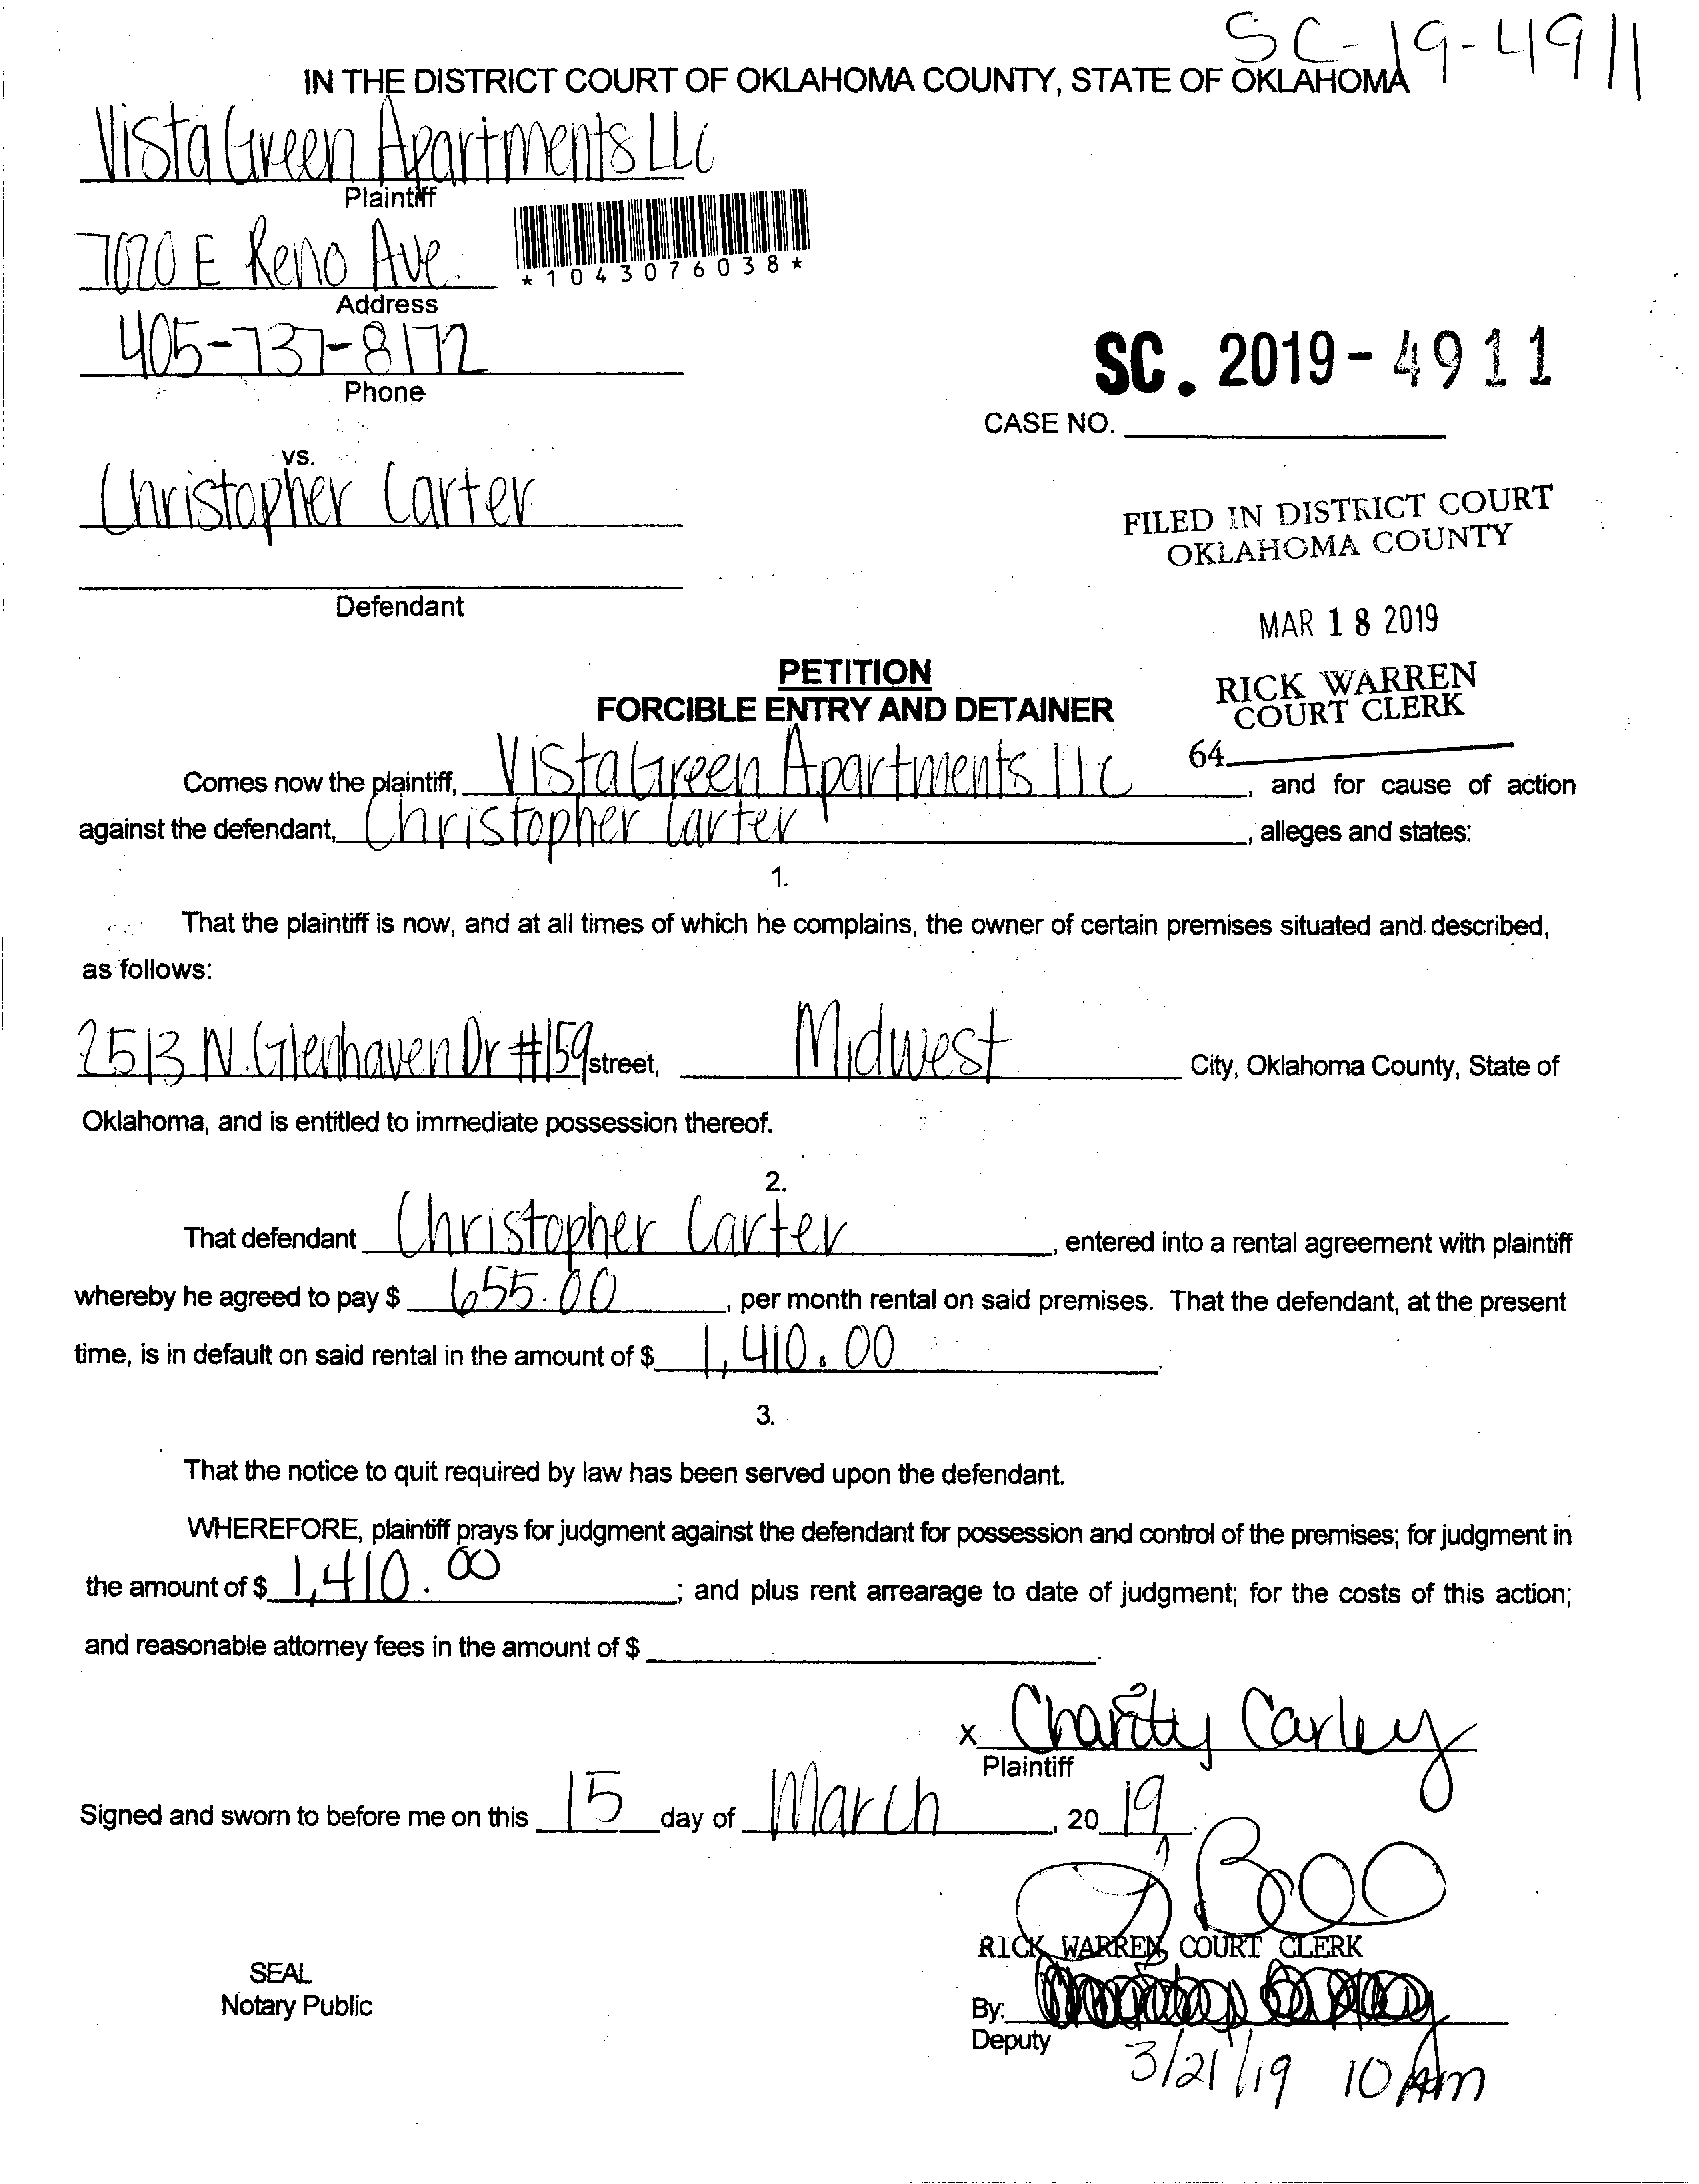 SC-19-4911
IN THE DISTRICT COURT OF OKLAHOMA COUNTY, STATE OF OKLAHOMA
Vista Green Apartments LLC
Plaintiff
7020 E Reno Ave.
*1043076038*
Address
405-737-8172
Phone
SC. 2019-4911
CASE NO.
vs.
Christopher Carter
FILED IN DISTRICT COURT
OKLAHOMA COUNTY
Defendant
MAR 18 2019
PETITION
FORCIBLE ENTRY AND DETAINER
RICK WARREN
COURT CLERK
64
Comes now the plaintiff, Vista Green Apartments llc, and for cause of action
against the defendant, Christopher Carter, alleges and states:
1.
That the plaintiff is now, and at all times of which he complains, the owner of certain premises situated and described,
as follows:
2513 N. Glenhaven Dr #159 street, Midwest City, Oklahoma County, State of
Oklahoma, and is entitled to immediate possession thereof.
2.
That defendant Christopher Carter, entered into a rental agreement with plaintiff
whereby he agreed to pay $ 655.00, per month rental on said premises. That the defendant, at the present
time, is in default on said rental in the amount of $ 1,410.00.
3.
That the notice to quit required by law has been served upon the defendant.
WHEREFORE, plaintiff prays for judgment against the defendant for possession and control of the premises; for judgment in
the amount of $ 1,410.00; and plus rent arrearage to date of judgment; for the costs of this action;
and reasonable attorney fees in the amount of $
x Charity Carley
Plaintiff
Signed and sworn to before me on this 15 day of March, 20 19.
RICK WARREN, COURT CLERK
SEAL
Notary Public
By:
Deputy
3/21/19 10 Am